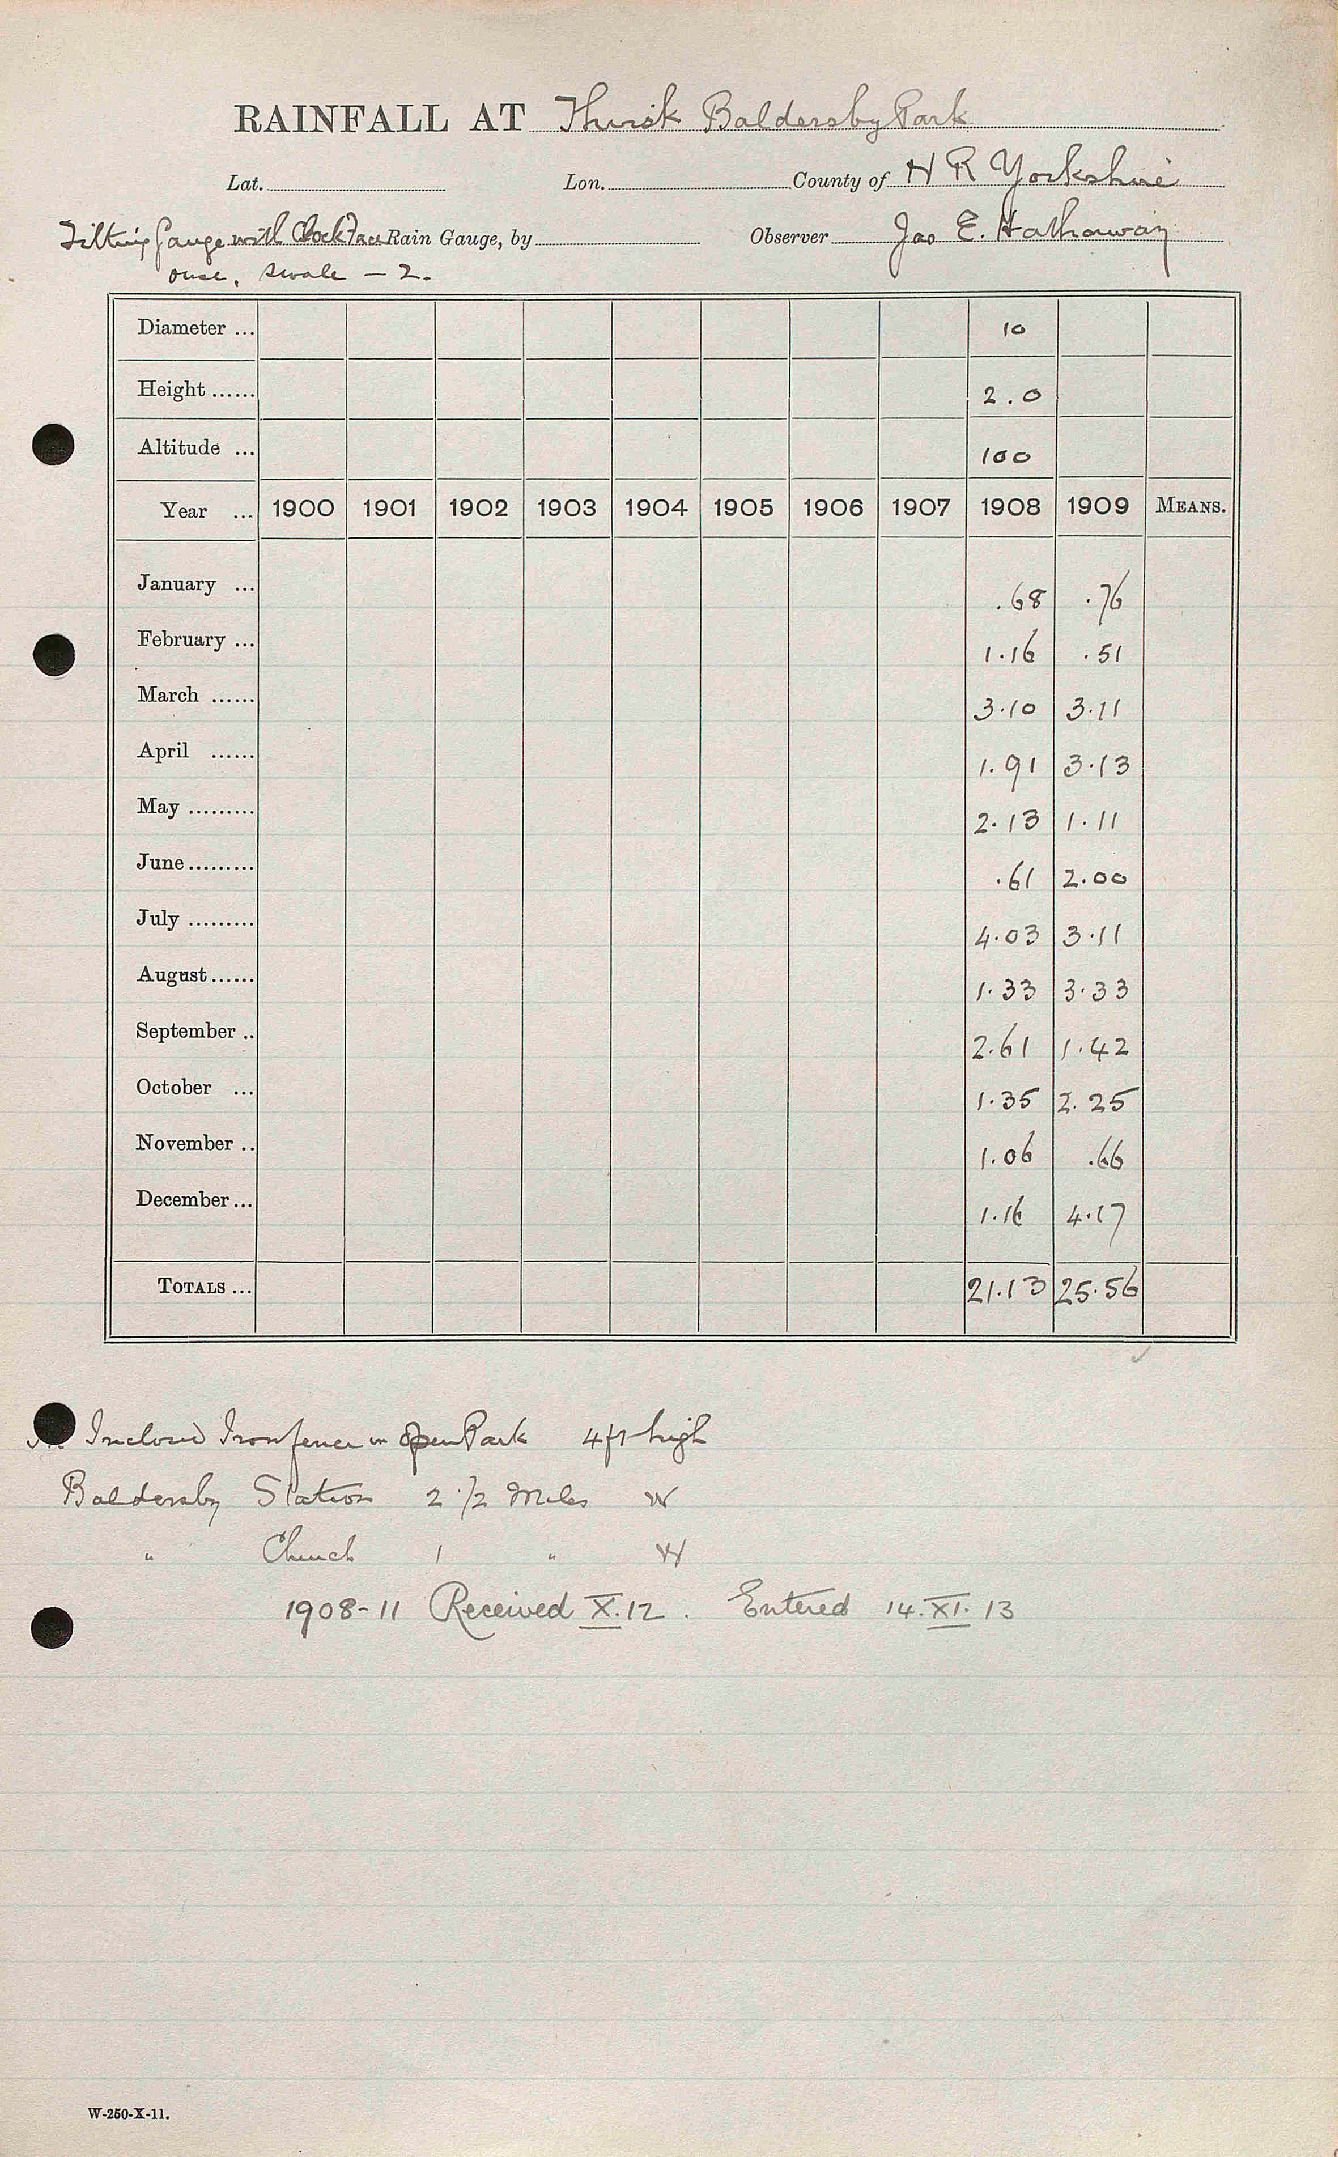 RAINFALL AT Thirsk Baldersby Park
Lat. Lon. County of N R Yorkshire
Tilting Gauge with Clock Face Rain Gauge, by Observer Jas E. Hathaway
Ouse, Swale - 2.
Diameter ... 10
Height ...... 2.0
Altitude ... 100
Year ... 1900 1901 1902 1903 1904 1905 1906 1907 1908 1909 MEANS.
January ... .68 .76
February ... 1.16 .51
March ...... 3.10 3.11
April ...... 1.91 3.13
May ......... 2.13 1.11
June ......... .61 2.00
July ......... 4.03 3.11
August ...... 1.33 3.33
September .. 2.61 1.42
October ... 1.35 2.25
November .. 1.06 .66
December ... 1.16 4.17
TOTALS ... 21.13 25.56
Inclosed Iron fence in Open Park 4 ft high
Baldersby Station 2 1/2 Miles W
" Church 1 " W
1908-11 Received X.12. Entered 14.XI.13
W-250-X-11.